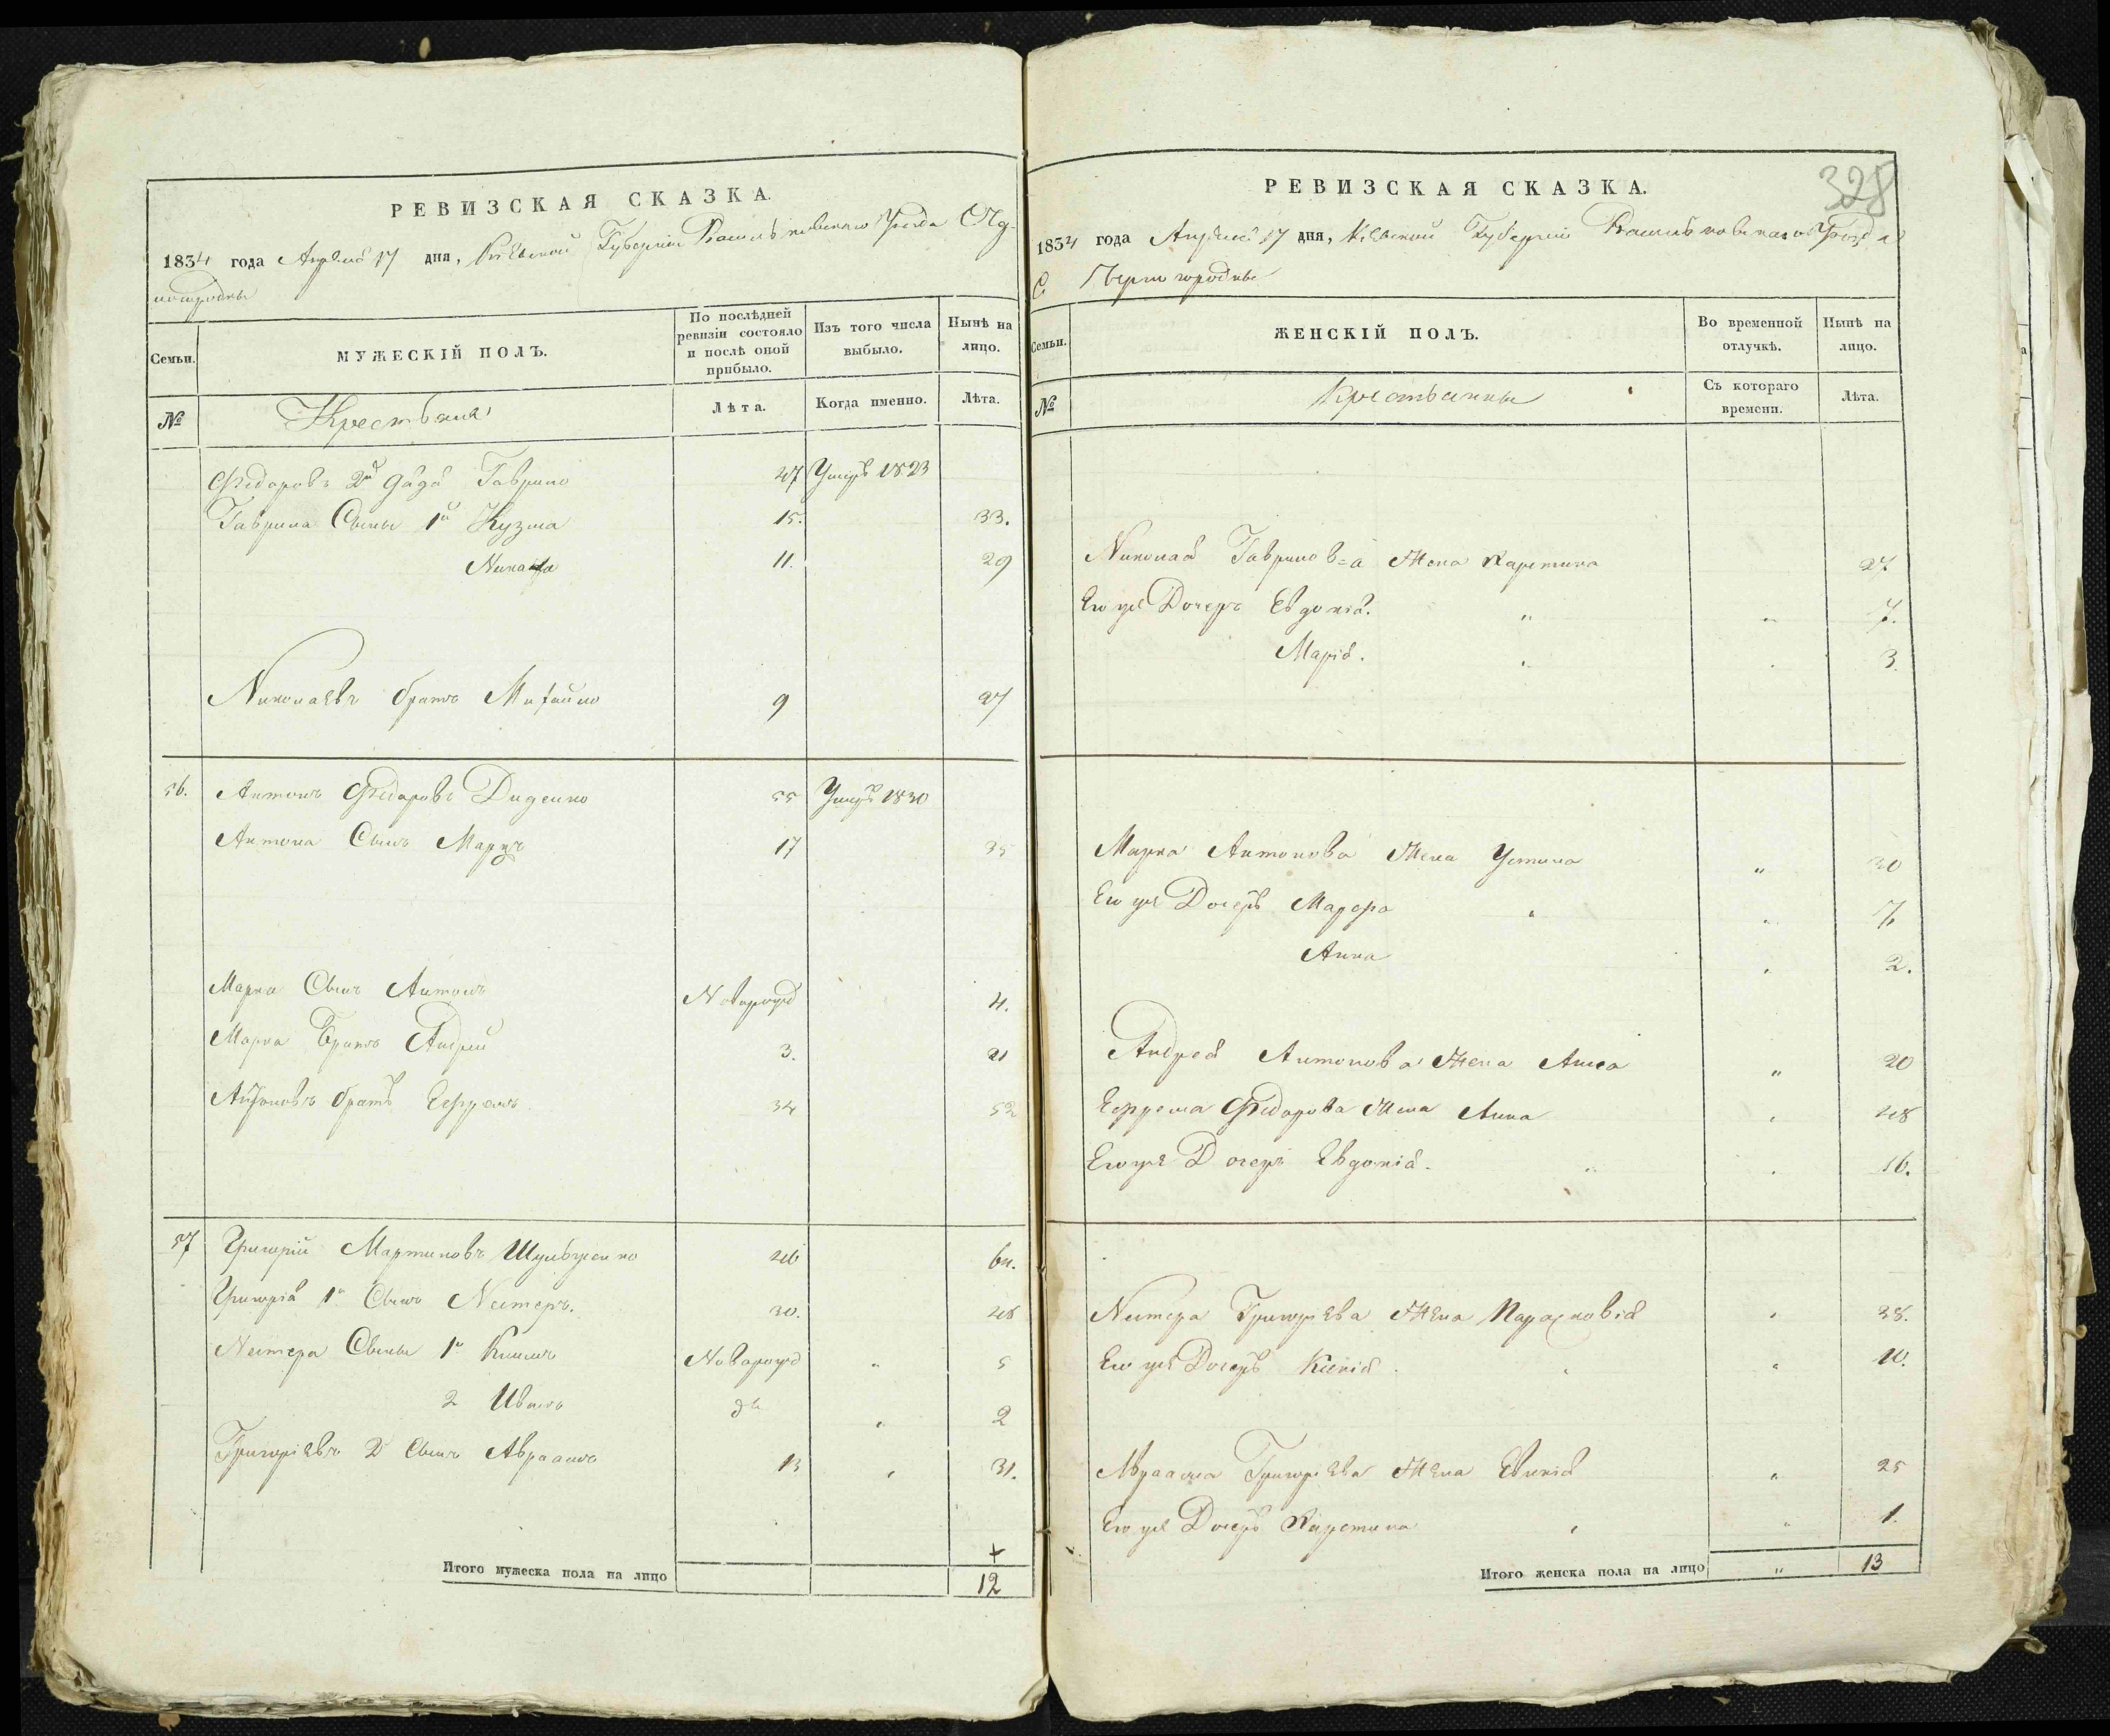 РЕВИЗСКАЯ СКАЗКА.
1834 года Апреля 17 дня, Кіевской Губерніи Васильковского Уезда
По послѣдней ревизіи состояло и послѣ оной прибыло.
Изъ того числа выбыло.
Нынѣ на лицо.
Семьи. МУЖЕСКІЙ ПОЛЪ.
№ Крестьяне Лѣта. Когда именно. Лѣта.
Федоровъ 2й дядя Гаврило 47 Умеръ 1823
Гаврила Сыны 1й Кузма 15. 33.
Никола 11. 29
Николаевъ братъ Михайло 9 27
56. Антонъ Федоровъ Диденко 55 Умеръ 1830
Антона Сынъ Марко 17 35
Марка Сынъ Антонъ Новорожд 4.
Марка Братъ Андрей 3. 21
Антоновъ братъ Ефремъ 34 52
57 Григорій Мартиновъ Шульженко 46 64.
Григорія 1й Сынъ Нестеръ. 30. 48
Нестера Сыны 1й Новорожд „ 5
2 Иванъ до „ 2
Григоріевъ 2 Сынъ Авраамъ 13 „ 31.
Итого мужеска пола на лицо 12
РЕВИЗСКАЯ СКАЗКА.
328
1834 года Апреля 17 дня, Кіевской Губерніи Васильковского Уезда
С.
Семьи. ЖЕНСКІЙ ПОЛЪ. Во временной отлучкѣ. Нынѣ на лицо.
№ Крестьянки Съ котораго времени. Лѣта.
Николая Гаврилова Жена Харитина 27
Его же Дочеръ Евдокія. „ „ 7.
Марія. 3.
Марка Антонова Жена Устина „ 30
Его же Дочеръ Марфа „ 7.
Анна „ 2.
Андрея Антонова Жена Анна „ 20
Ефрема Федорова Жена Анна „ 48
Его же Дочеръ Евдокія. „ 16.
Нестера Григоріева Жена Парасковія „ 38.
Его же Дочеръ Ксенія „ 10.
Авраама Григоріева Жена „ 25
Его же Дочеръ Харитина „ 1.
Итого женска пола на лицо „ 13